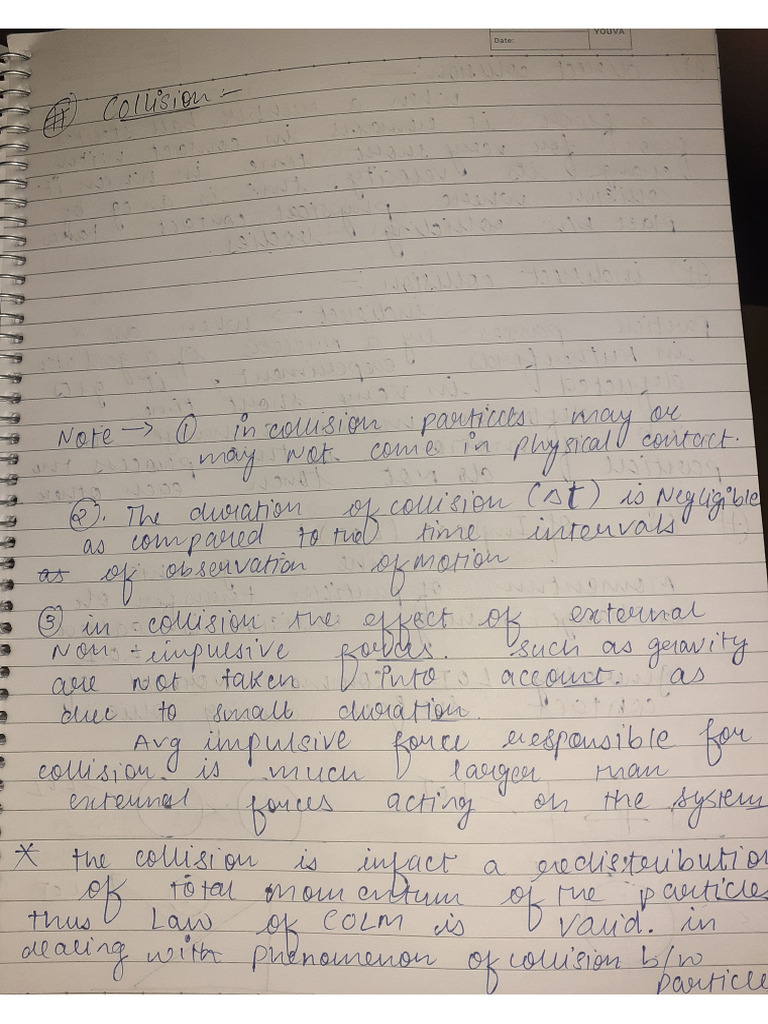 YOUVA
Date:
# Collision :-
Note → ① in collision particles may or
may not come in physical contact.
②. The duration of collision (Δt) is Negligible
as compared to the time intervals
as of observation of motion
③ in collision the effect of external
Non-impulsive forces. such as gravity
are not taken into account. as
due to small duration.
Avg impulsive force responsible for
collision is much larger than
external forces acting on the system
* the collision is infact a redistribution
of total momentum of the particles
thus Law of COLM is valid. in
dealing with phenomenon of collision b/w
particle